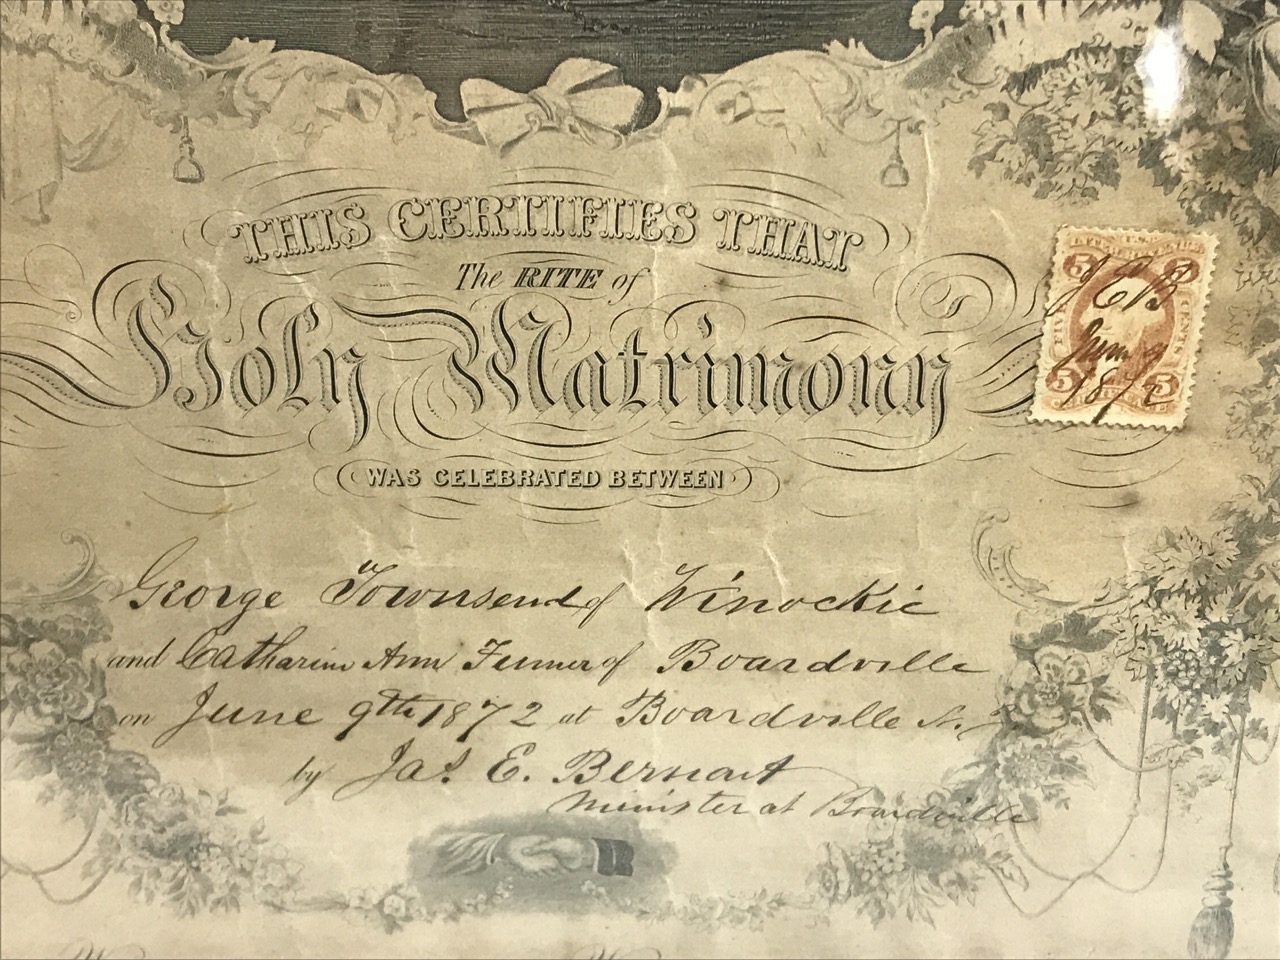 THIS CERTIFIES THAT
The RITE of
Holy Matrimony
WAS CELEBRATED BETWEEN
George Townsend of Winockie
and Catharine Ann Fenner of Boardville
on June 9th 1872 at Boardville N.J
by Jas. E. Bernart
Minister at Boardville
5 5
J E B
June 9
1872
FIVE CENTS
5 5